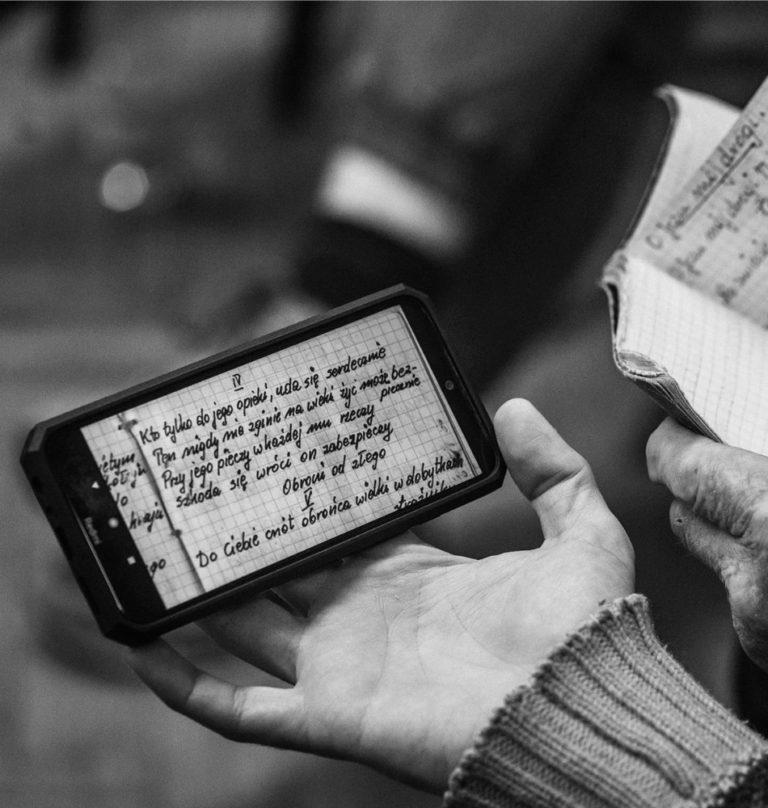 IV
Kto tylko do jego opieki, uda się serdecznie
Ten nigdy nie zginie na wieki żyć może bez-
piecznie
Przy jego pieczy w każdej mu rzeczy
szkoda się wróci on zabezpieczy
Obroni od złego
V
Do Ciebie cnót obrońca wielki w dobytkam
go
Redmi
O Jezu mój drogi.
Jezu mój drogi